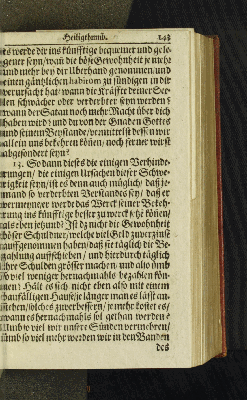 Heiligthumb. 143
es werde dir ins künfftige bequemer und gele-
gener seyn/ wan die böse Gewonheit je mehr
und mehr bey dir überhand genommen/ und
einen gäntzlichen habitum zu sündigen in dir
verursacht hat/ wann die Kräffte deiner See-
len schwächer oder verderbter seyn werden?
wann der Satan noch mehr Macht über dich
haben wird/ und du von der Gnaden Gottes
und seinem Beystande/ vermittelst dessen wir
alle in uns bekehren können/ noch ferner wirst
abgesondert seyn?
13. So dann dieses die einigen Verhinde-
rungen/ die einigen Ursachen dieser Schwe-
rigkeit seyn/ ist es denn auch müglich/ daß je-
mand so verderbten Verstandes sey/ daß er
vermeyne/ er werde das Werck seiner Bekeh-
rung ins künfftige besser zu werck
als eben jetzund? Ist da nicht die Gewohnheit
böser Schuldner/ welche viel Geld zu verzinsen
auffgenommen haben/ daß sie täglich die Be-
zahlung auffschieben/ und hierdurch täglich
ihre Schulden grösser machen/ und also umb
so viel weniger hernachmahls bezahlen kön-
nen? Hält es sich nicht eben also mit einem
baufälligen Hause/ je länger man es lässt an-
stehen/ solches zuverbessern/ je mehr kostet es/
wann es hernachmahls sol gethan werden?
Und so viel wir unsere Sünden vermehren/
umb so viel mehr werden wir in den Banden
des